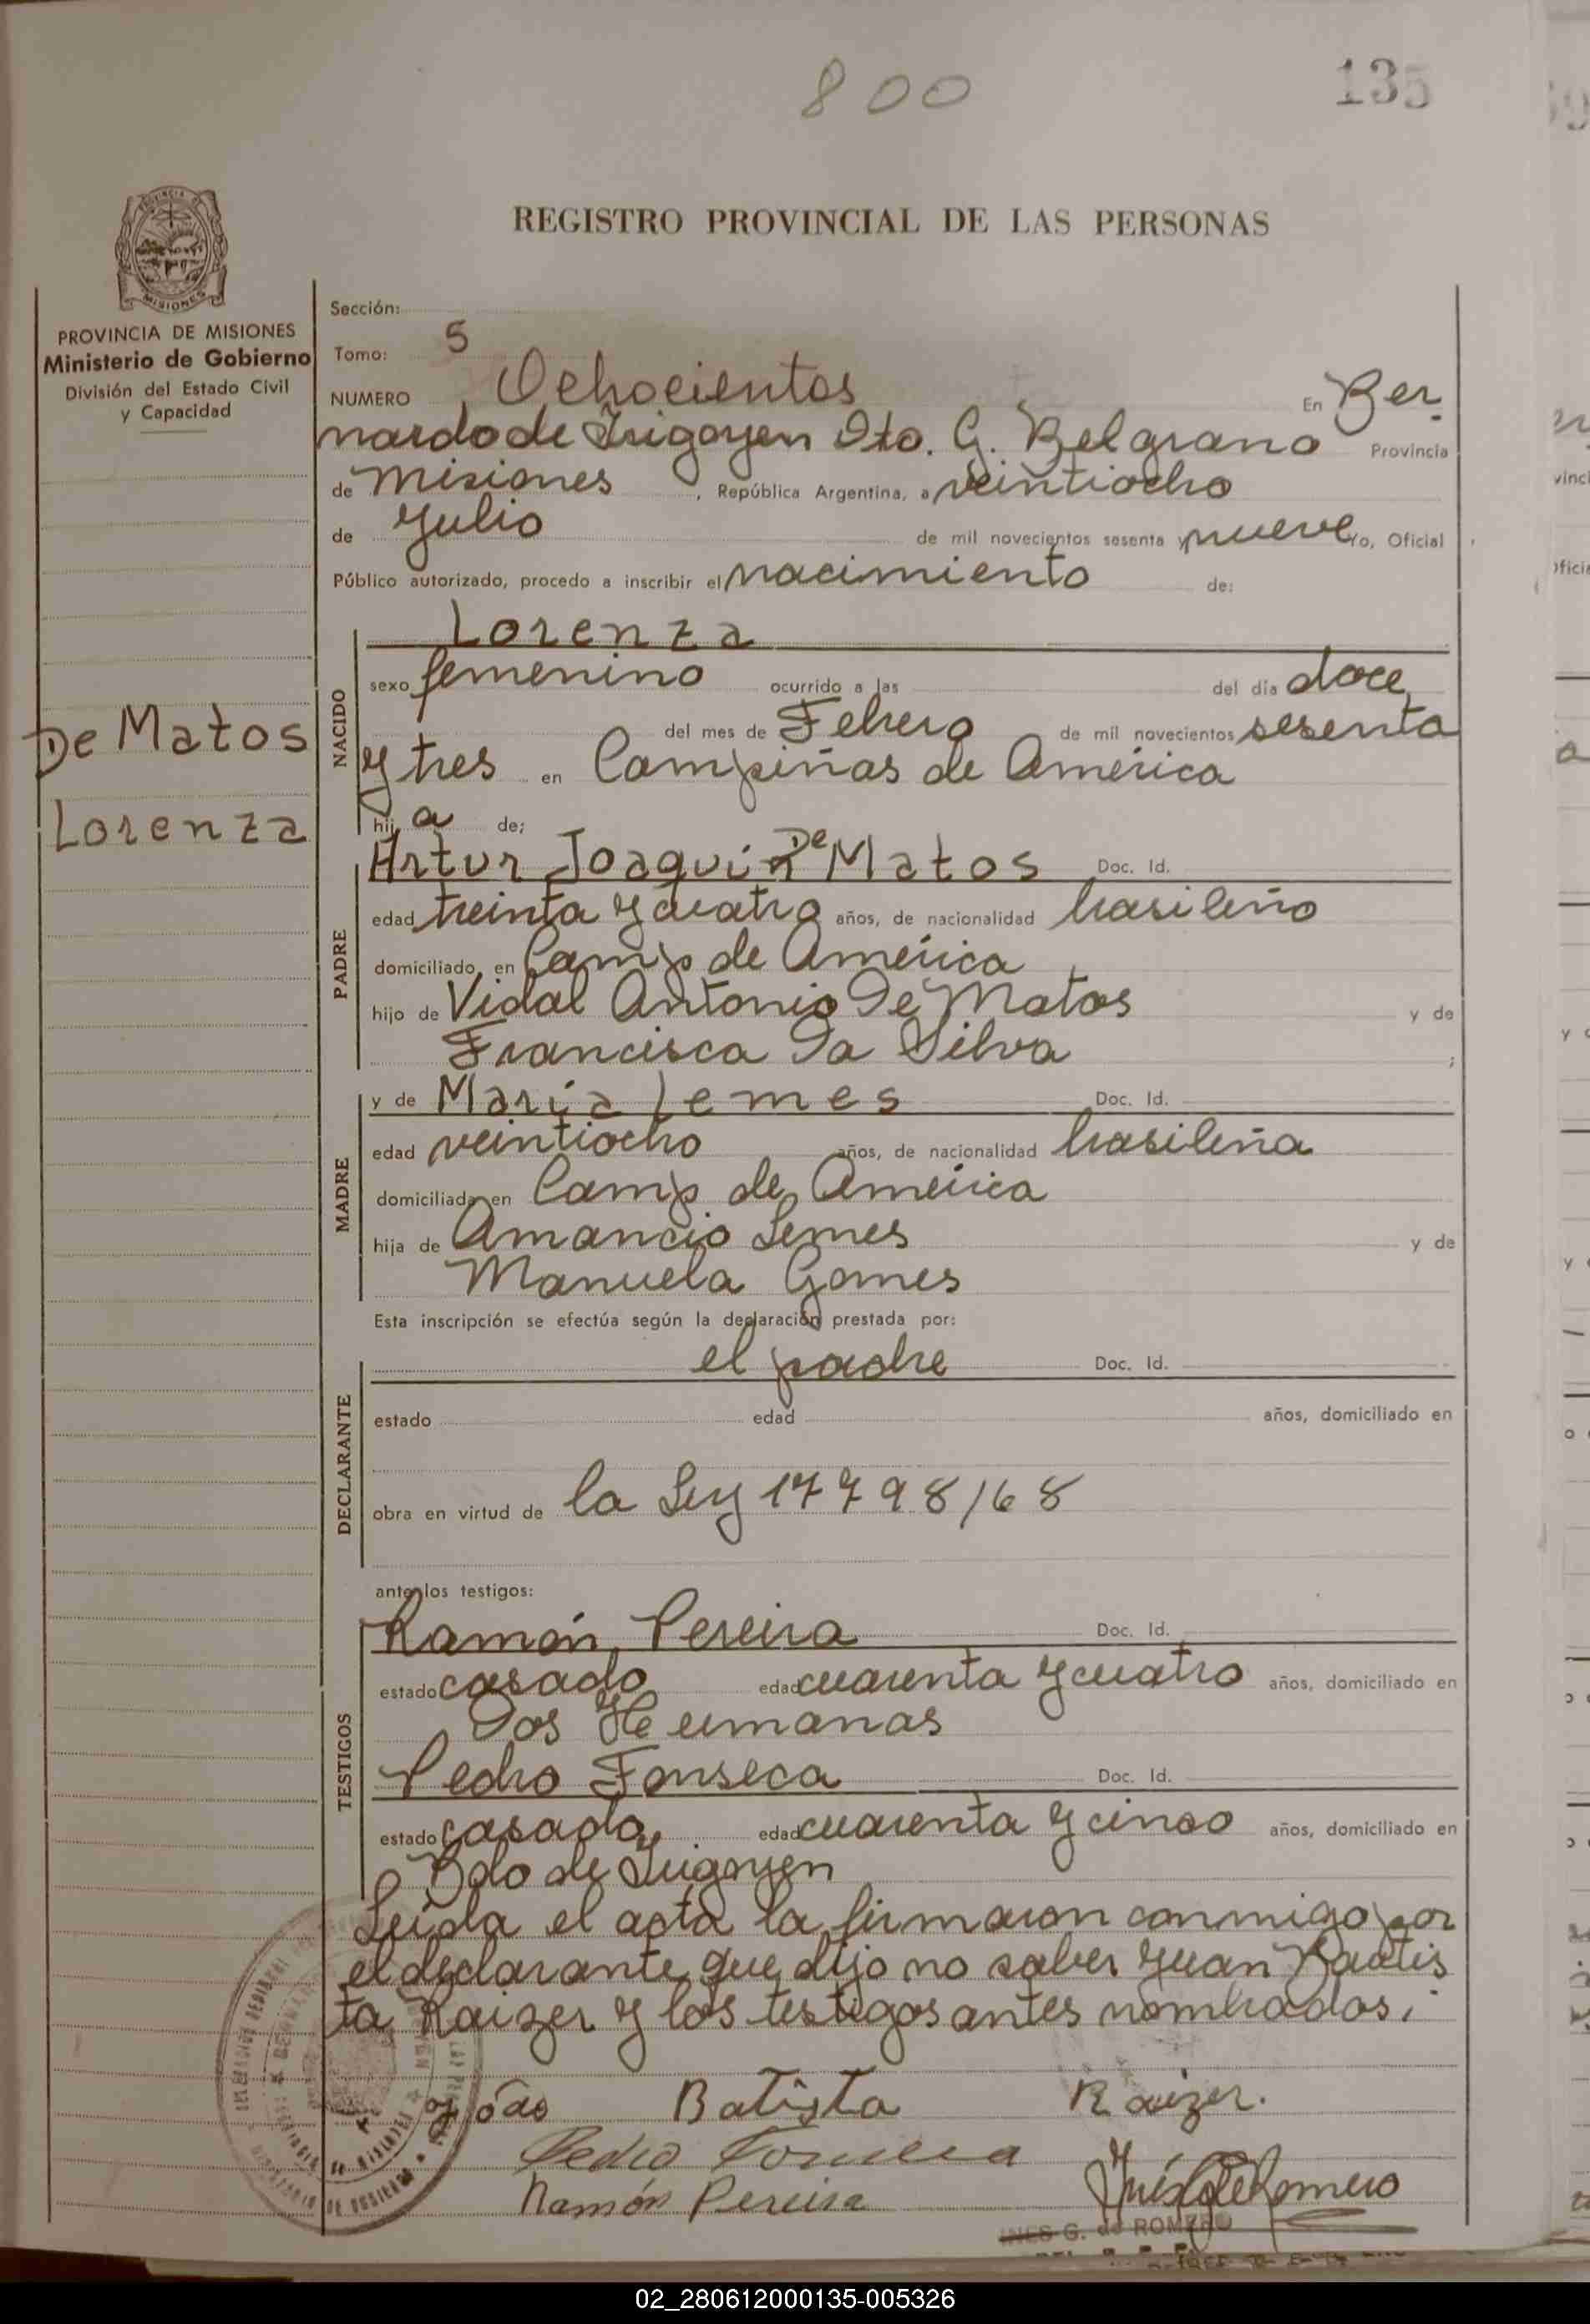 800
135
REGISTRO PROVINCIAL DE LAS PERSONAS
PROVINCIA DE MISIONES
Ministerio de Gobierno
División del Estado Civil
y Capacidad
De Matos
Lorenza
Sección:
Tomo: 5
NUMERO Ochocientos En Ber
nardo de Irigoyen Dto. G. Belgrano Provincia
de Misiones, República Argentina, a veintiocho
de Julio de mil novecientos sesenta y nueve yo, Oficial
Público autorizado, procedo a inscribir el nacimiento de:
NACIDO
Lorenza
sexo femenino ocurrido a las del día doce
del mes de Febrero de mil novecientos sesenta
y tres en Campiñas de América
hij a de:
PADRE
Artur Joaquin De Matos Doc. Id.
edad treinta y cuatro años, de nacionalidad brasileño
domiciliado en Camp de América
hijo de Vidal Antonio De Matos y de
Francisca Da Silva ;
MADRE
y de María Lemes Doc. Id.
edad veintiocho años, de nacionalidad brasileña
domiciliada en Camp. de América
hija de Amancio Lemes y de
Manuela Gomes
Esta inscripción se efectúa según la declaración prestada por:
DECLARANTE
el padre Doc. Id.
estado edad años, domiciliado en
obra en virtud de la Ley 17798/68
ante los testigos:
TESTIGOS
Ramón Pereira Doc. Id.
estado casado edad cuarenta y cuatro años, domiciliado en
Dos Hermanas
Pedro Fonseca Doc. Id.
estado casado edad cuarenta y cinco años, domiciliado en
Bdo de Irigoyen
Leída el acta la firmaron conmigo por
el declarante que dijo no saber Juan Bautis
ta Raizer y los testigos antes nombrados.
João Batista Raizer.
Pedro Fonseca
Ramón Pereira
Inés G de Romero
INES G. de ROMERO
02_280612000135-005326